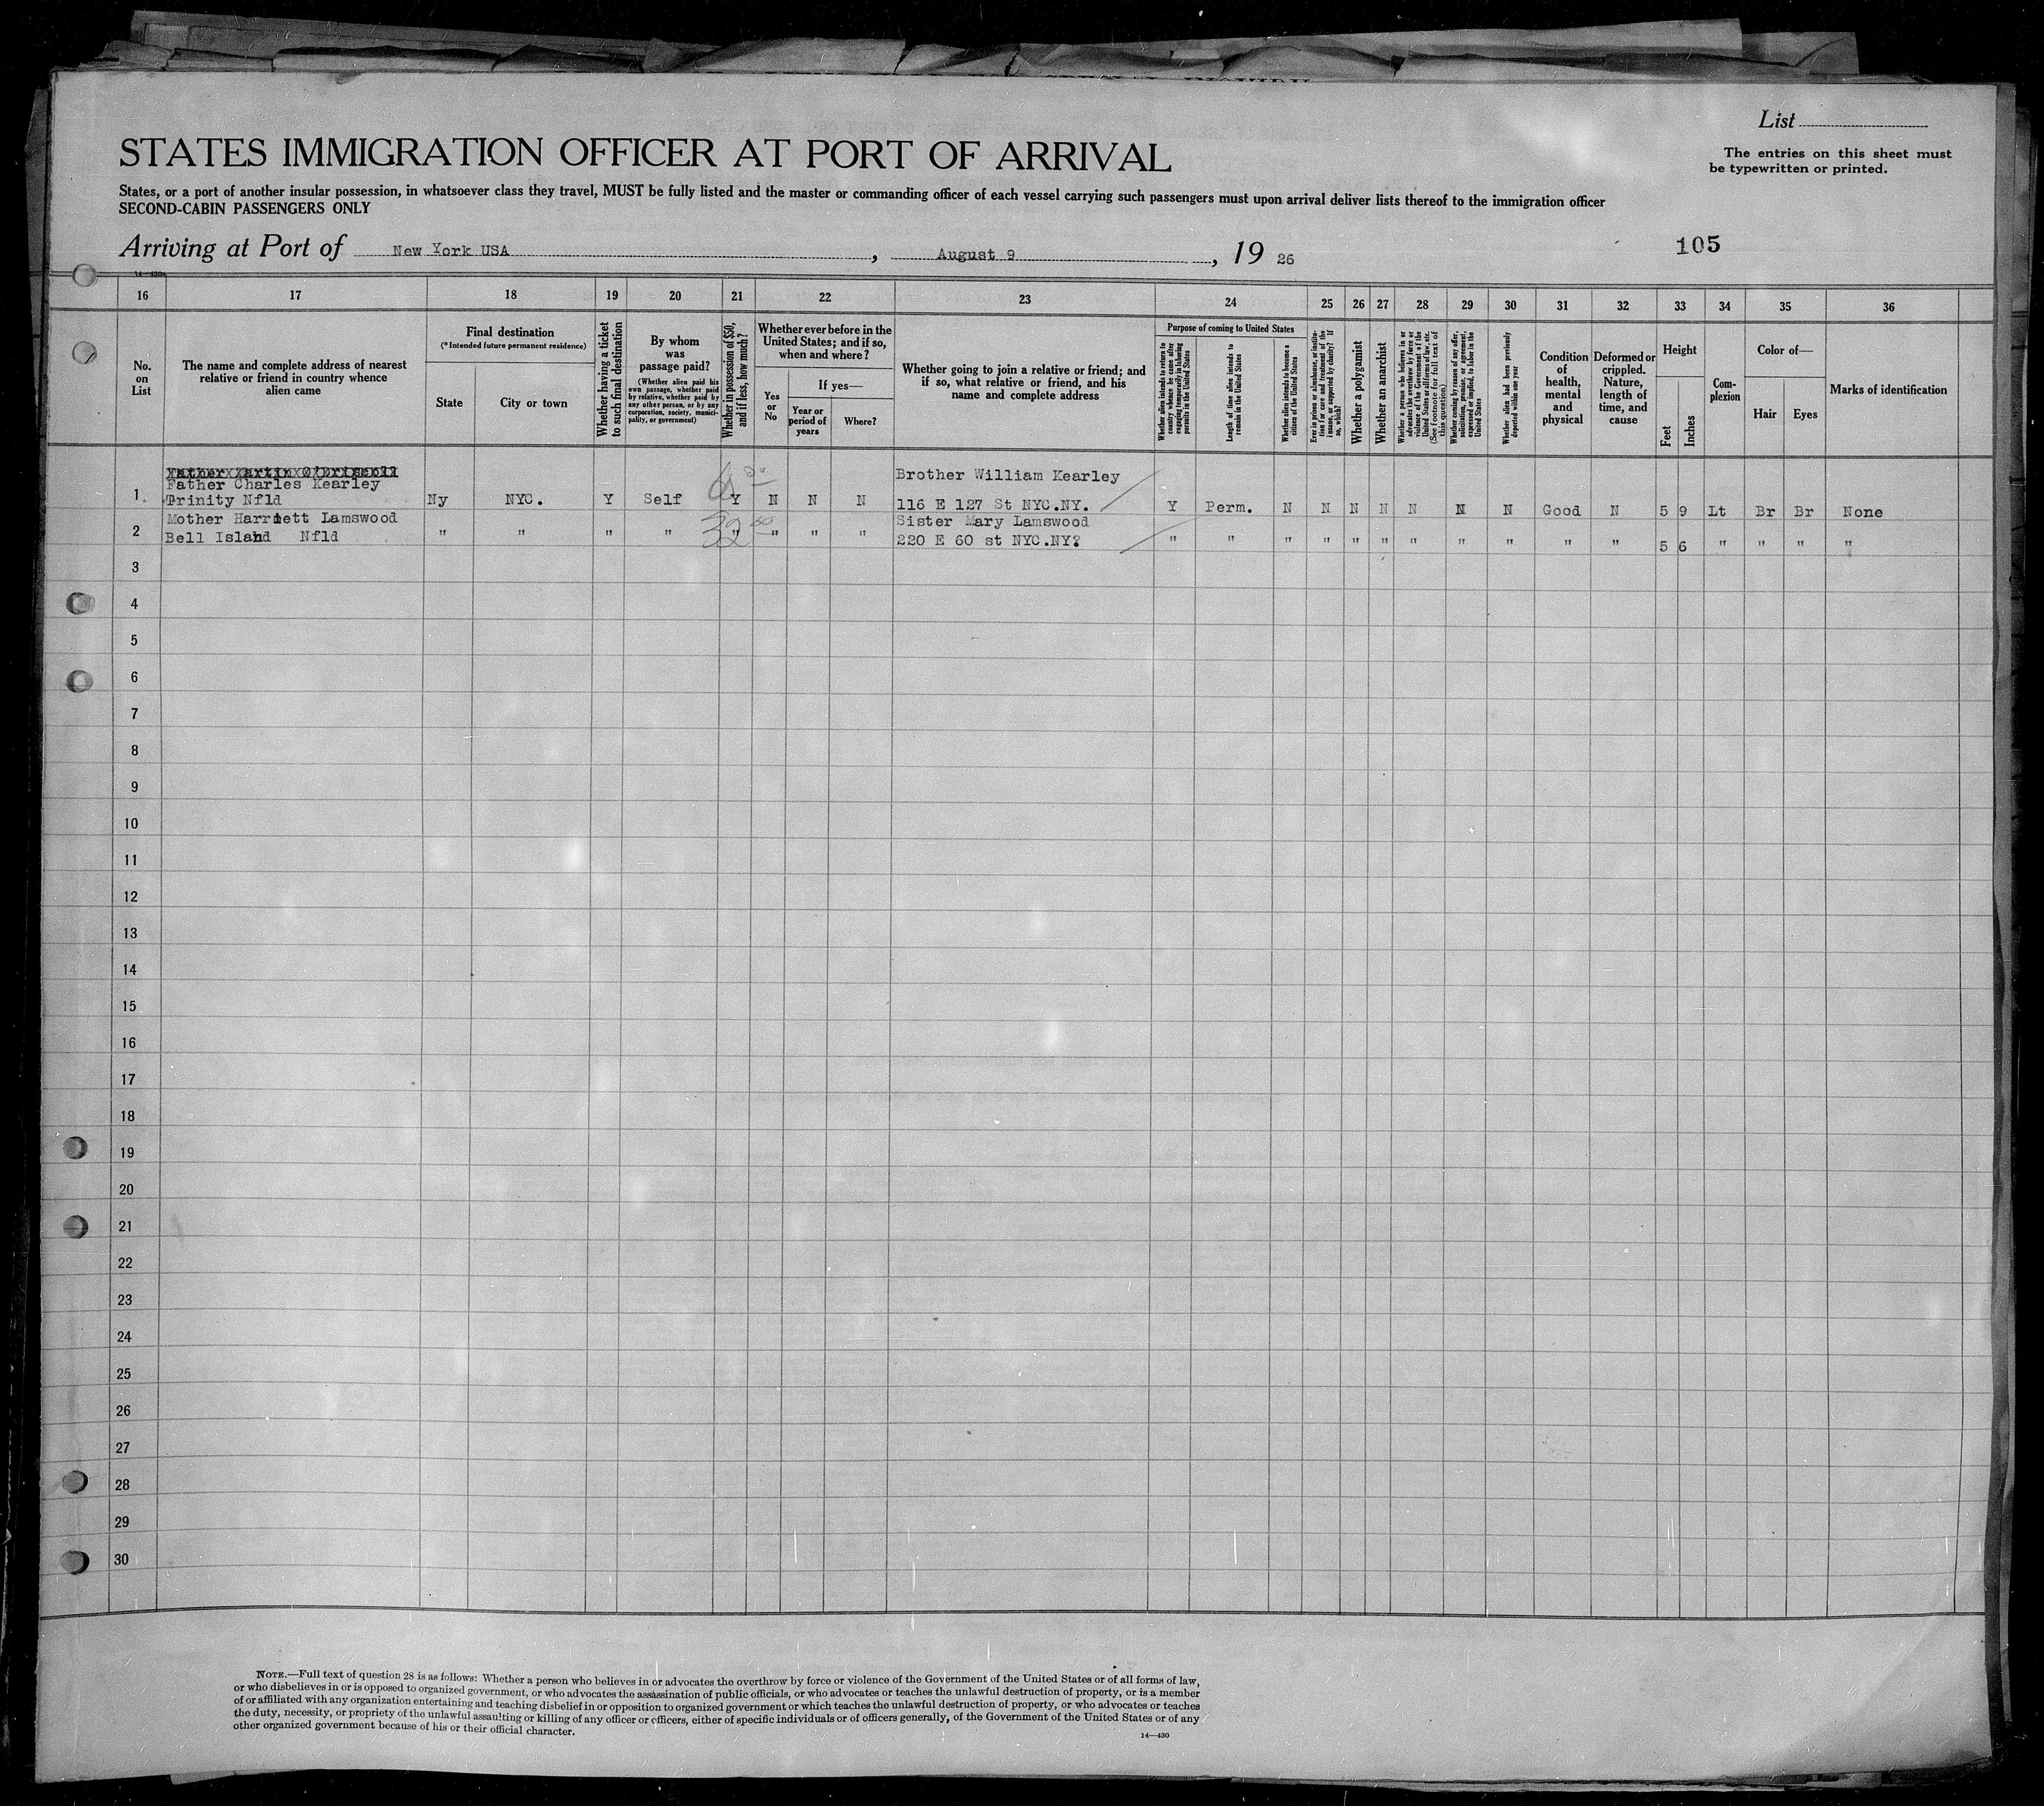 List
STATES IMMIGRATION OFFICER AT PORT OF ARRIVAL
The entries on this sheet must
be typewritten or printed.
States, or a port of another insular possession, in whatsoever class they travel, MUST be fully listed and the master or commanding officer of each vessel carrying such passengers must upon arrival deliver lists thereof to the immigration officer
SECOND-CABIN PASSENGERS ONLY
Arriving at Port of New York USA, August 9, 19 26
105
14-430
16 17 18 19 20 21 22 23 24 25 26 27 28 29 30 31 32 33 34 35 36
No.
on
List
The name and complete address of nearest
relative or friend in country whence
alien came
Final destination
(*Intended future permanent residence)
State
City or town
Whether having a ticket
to such final destination
By whom
was
passage paid?
(Whether alien paid his
own passage, whether paid
by relative, whether paid by
any other person, or by any
corporation, society, munici-
pality, or government)
Whether in possession of $50,
and if less, how much?
Whether ever before in the
United States; and if so,
when and where?
Yes
or
No
If yes—
Year or
period of
years
Where?
Whether going to join a relative or friend; and
if so, what relative or friend, and his
name and complete address
Purpose of coming to United States
Whether alien intends to return to
country whence he came after
engaging temporarily in laboring
pursuits in the United States
Length of time alien intends to
remain in the United States
Whether alien intends to become a
citizen of the United States
Ever in prison or almshouse, or institu-
tion for care and treatment of the
insane, or supported by charity? If
so, which?
Whether a polygamist
Whether an anarchist
Whether a person who believes in or
advocates the overthrow by force or
violence of the Government of the
United States or all forms of law, etc.
(See footnote for full text of
this question)
Whether coming by reason of any offer,
solicitation, promise, or agreement,
expressed or implied, to labor in the
United States
Whether alien had been previously
deported within one year
Condition
of
health,
mental
and
physical
Deformed or
crippled.
Nature,
length of
time, and
cause
Height
Feet
Inches
Com-
plexion
Color of—
Hair
Eyes
Marks of identification
Father Charles Kearley
Brother William Kearley
1 Trinity Nfld Ny NYC. Y Self Y N N N 116 E 127 St NYC.NY. Y Perm. N N N N N N N Good N 5 9 Lt Br Br None
Mother Harriett Lamswood
Sister Mary Lamswood
2 Bell Island Nfld " " " " " " " " 220 E 60 st NYC.NY? " " " " " " " " " " " 5 6 " " " "
32
3
4
5
6
7
8
9
10
11
12
13
14
15
16
17
18
19
20
21
22
23
24
25
26
27
28
29
30
NOTE.—Full text of question 28 is as follows: Whether a person who believes in or advocates the overthrow by force or violence of the Government of the United States or of all forms of law,
or who disbelieves in or is opposed to organized government, or who advocates the assassination of public officials, or who advocates or teaches the unlawful destruction of property, or is a member
of or affiliated with any organization entertaining and teaching disbelief in or opposition to organized government or which teaches the unlawful destruction of property, or who advocates or teaches
the duty, necessity, or propriety of the unlawful assaulting or killing of any officer or officers, either of specific individuals or of officers generally, of the Government of the United States or of any
other organized government because of his or their official character.
14—430